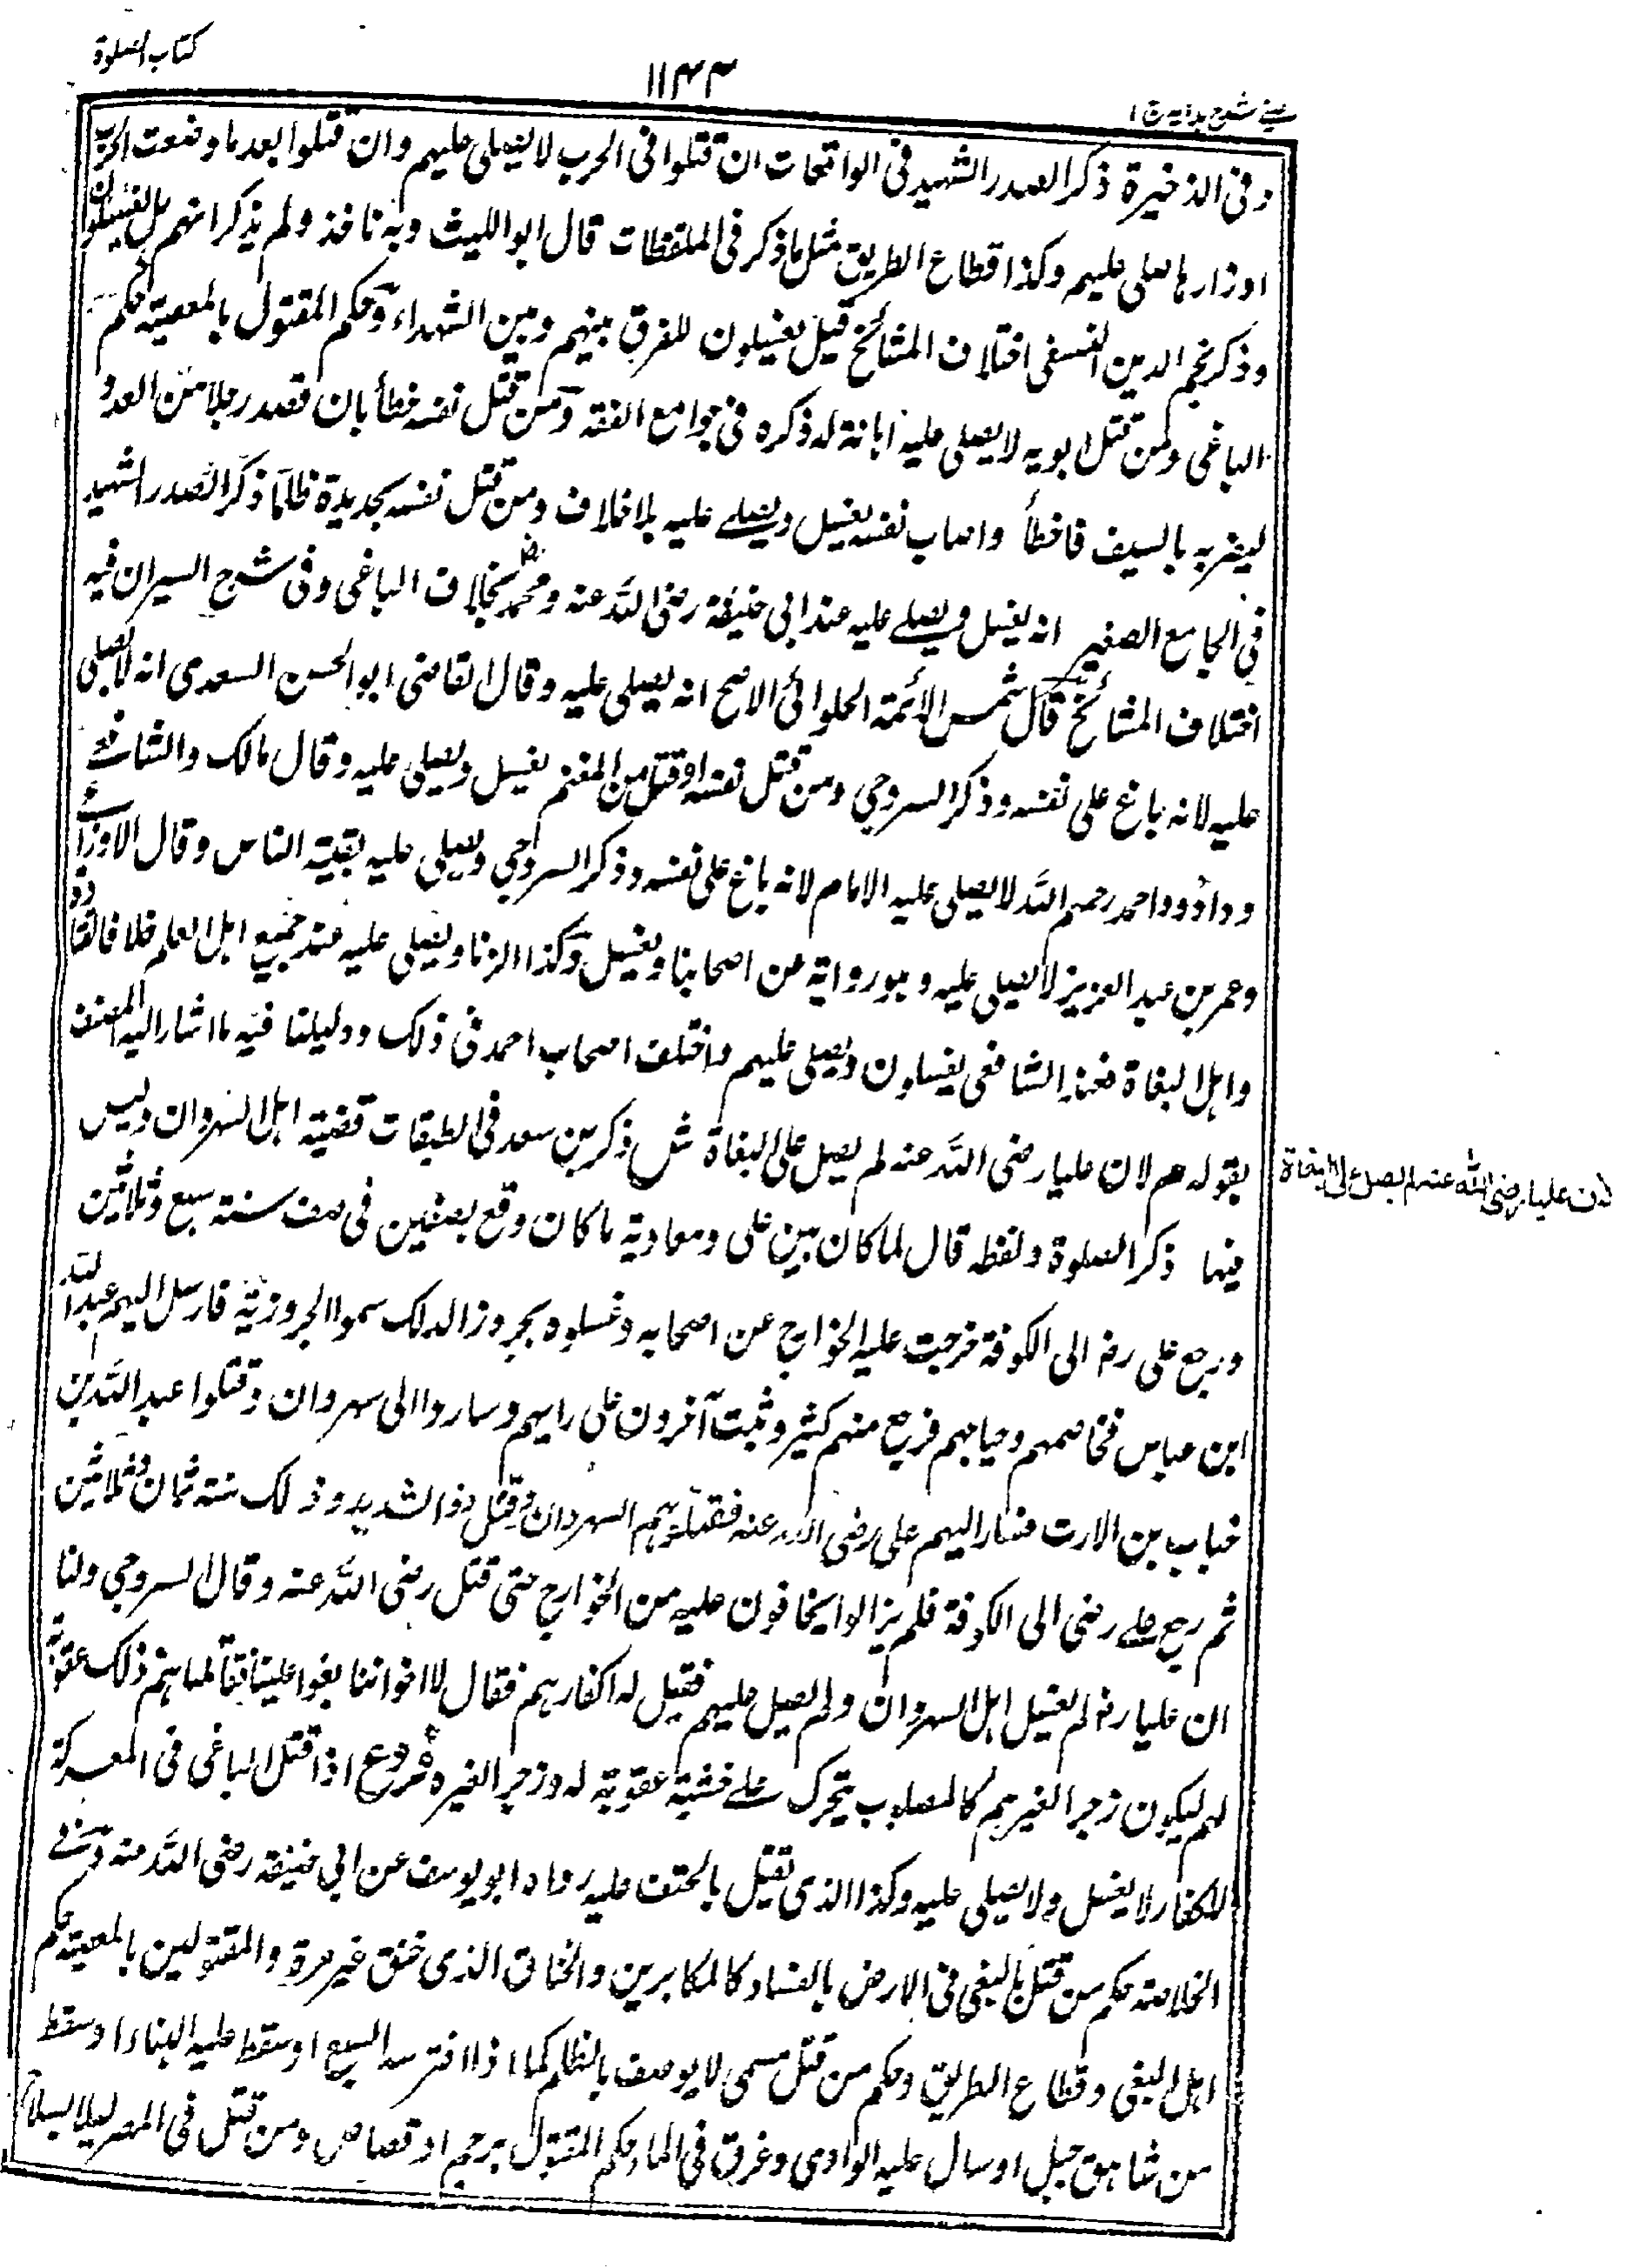 كتاب الصلوة
١١٤٤
عيني شرح هداية ج ١
وفى الذخيرة ذكر الصدر الشهيد فى الواقعات ان قتلوا فى الحرب لا يصلى عليهم وان قتلوا بعد ما وضعت الحرب
اوزارها صلى عليهم وكذا قطاع الطريق مثل ما ذكر فى الملتقطات قال ابو الليث وبه ناخذ ولم يذكر انهم هل يغسلون
وذكر نجم الدين النسفى اختلاف المشائخ قيل يغسلون للفرق بينهم وبين الشهداء وحكم المقتول بالمعصية حكم
الباغى ومن قتل ابويه لا يصلى عليه اهانة له ذكره فى جوامع الفقه ومن قتل نفسه خطأ بان قصد رجلا من العدو
ليضربه بالسيف فاخطأ واصاب نفسه يغسل ويصلے عليه بلا خلاف ومن قتل نفسه بحديدة ظلما ذكر الصدر الشهيد
فى الجامع الصغير انه يغسل ويصلے عليه عند ابى حنيفة رضى الله عنه ومحمد بخلاف الباغى وفى شرح السير ان فيه
اختلاف المشائخ قال شمس الائمة الحلوائى الاصح انه يصلى عليه وقال القاضى ابو الحسن السعدى انه لا يصلى
عليه لانه باغ على نفسه وذكر السروجي ومن قتل نفسه او قتل من المغنم يغسل ويصلى عليه وقال مالك والشافعے
وداؤد واحمد رحمهم الله لا يصلى عليه الامام لانه باغ على نفسه وذكر السروجي ويصلى عليه بقية الناس وقال الاوزاعے
وعمر بن عبد العزيز لا يصلى عليه وهو رواية عن اصحابنا ويغسل وكذا الزنا ويصلى عليه عند جميع اهل العلم خلافا لقتادة
واهل البغاة فعند الشافعى يغسلون ويصلى عليهم واختلف اصحاب احمد فى ذلك ودليلنا فيه ما اشار اليه المصنف
بقوله هم لان عليا رضى الله عنه لم يصل على البغاة ش ذكر بن سعد فى الطبقات قضية اهل النهروان وليس
لان عليا رضى الله عنه لم يصل على البغاة
فيها ذكر الصلوة ولفظه قال لما كان بين على ومعاوية ما كان وقع بصفين فى صف سنته سبع وثلاثين
ورجع على رضه الى الكوفة خرجت عليه الخوارج عن اصحابه وغسلوه بحروز الدلك سموا الحروزية فارسل اليهم عبد الله
ابن عباس فخاصمهم وحاجهم فرجع منهم كثير وثبت آخرون على رايهم وساروا الى نهروان وقتلوا عبد الله بن
خباب بن الارت فسار اليهم على رضى الله عنه فقتلهم بالنهروان وقتل ذو الثديه وذلك سنة ثمان وثلاثين
ثم رجع علے رضى الى الكوفة فلم يزالوا يخافون عليه من الخوارج حتى قتل رضى الله عنه وقال السروجي ولنا
ان عليا رضه لم يغسل اهل النهروان ولم يصل عليهم فقيل له اكفارهم فقال لا اخواننا بغوا علينا فقاتلناهم ذلك عقوبة
لهم ليكون زجرا لغيرهم كالمصلوب يترك علے خشبة عقوبة له وزجرا لغيره فروع اذا قتل الباغى فى المعركة
لا يغسل ولا يصلى عليه وكذا الذى يقتل بالخنق عليه رواه ابو يوسف عن ابى حنيفة رضى الله عنه وفے
الخلاصة حكم من قتل بالبغى فى الارض بالفساد كالمكابرين والخناق الذى خنق غير مرة والمقتولين بالمعصية حكم
اهل البغى وقطاع الطريق وحكم من قتل مسمى لا يوصف بالظلم كما اذا افترسه السبع او سقط عليه البناء او سقط
من شاهق جبل او سال عليه الوادى وغرق فى الماء حكم المقتول برجم او قصاص ومن قتل فى المصر ليلا بسلاح